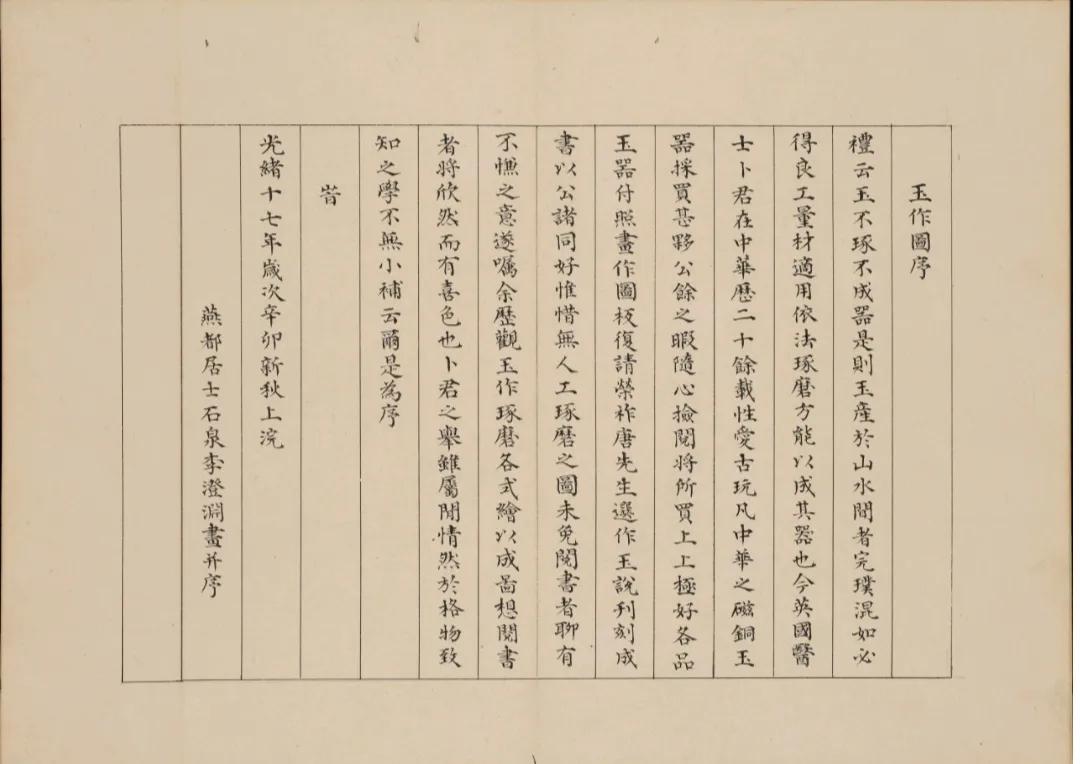 玉作圖序
禮云玉不琢不成器是則玉產於山水間者完璞混如必
得良工量材適用依法琢磨方能以成其器也今英國醫
士卜君在中華歷二十餘載性愛古玩凡中華之磁銅玉
器採買甚夥公餘之暇隨心撿閱將所買上上極好各品
玉器付照畫作圖板復請榮祚唐先生選作玉說刋刻成
書以公諸同好惟惜無人工琢磨之圖未免閱書者聊有
不憮之意遂囑余歷觀玉作琢磨各式繪以成啚想閱書
者將欣然而有喜色也卜君之舉雖屬閒情然於格物致
知之學不無小補云爾是為序
旹
光緒十七年歲次辛卯新秋上浣
燕都居士石泉李澄淵畫并序